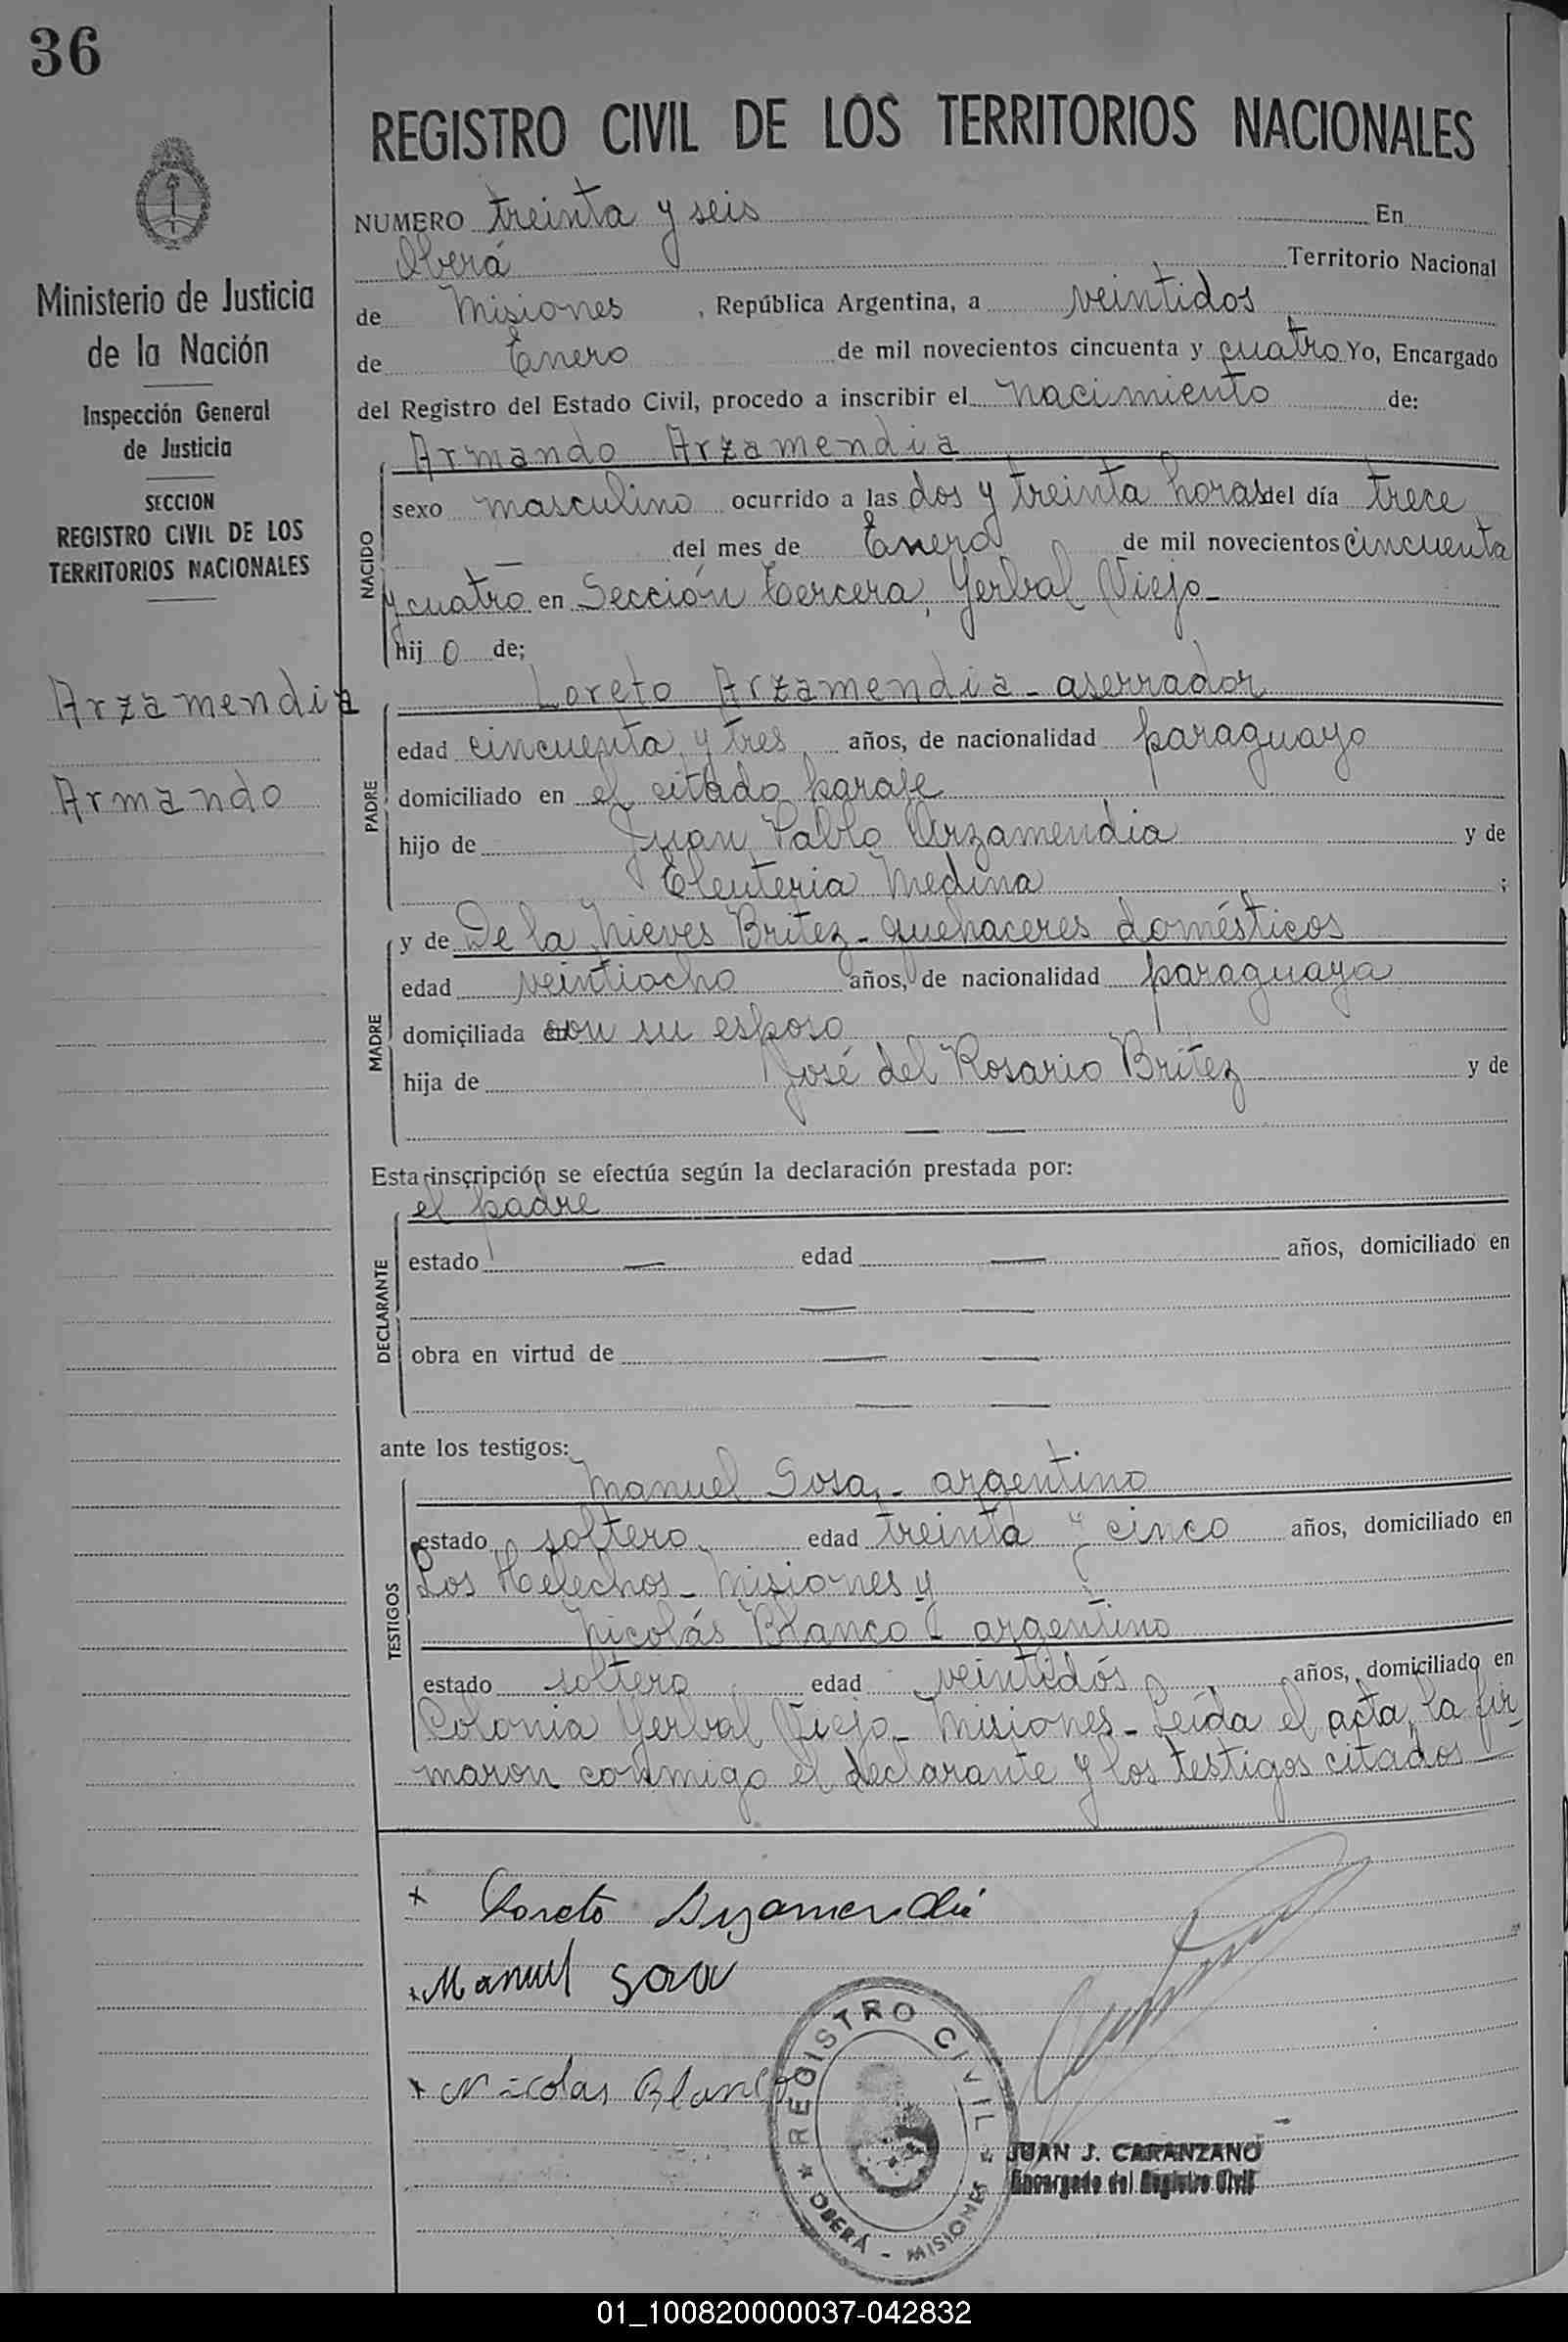 36
REGISTRO CIVIL DE LOS TERRITORIOS NACIONALES
Ministerio de Justicia
de la Nación
Inspección General
de Justicia
SECCION
REGISTRO CIVIL DE LOS
TERRITORIOS NACIONALES
Arzamendia
Armando
NUMERO treinta y seis En
Oberá Territorio Nacional
de Misiones, República Argentina, a veintidos
de Enero de mil novecientos cincuenta y cuatro Yo, Encargado
del Registro del Estado Civil, procedo a inscribir el nacimiento de:
NACIDO
Armando Arzamendia
sexo masculino ocurrido a las dos y treinta horas del día trece
— del mes de Enero de mil novecientos cincuenta
y cuatro en Sección tercera, Yerbal Viejo -
hijo de;
PADRE
Loreto Arzamendia - aserrador
edad cincuenta y tres años, de nacionalidad paraguayo
domiciliado en el citado paraje
hijo de Juan Pablo Arzamendia y de
Eleuteria Medina ;
MADRE
y de De la Nieves Britez - quehaceres domésticos
edad veintiocho años, de nacionalidad paraguaya
domiciliada con su esposo
hija de José del Rosario Britez y de
— —
Esta inscripción se efectúa según la declaración prestada por:
DECLARANTE
el padre
estado — edad — años, domiciliado en
— —
obra en virtud de — —
— —
ante los testigos:
TESTIGOS
Manuel Sosa, - argentino
estado soltero, edad treinta y cinco años, domiciliado en
Los Helechos - Misiones y
Nicolás Blanco - argentino
estado soltero edad veintidós años, domiciliado en
Colonia Yerbal Viejo - Misiones - Leída el acta, la fir-
maron conmigo el declarante y los testigos citados —
x Loreto Arzamendia
x Manuel Sosa
x Nicolas Blanco
REGISTRO CIVIL
OBERÁ - MISIONES
JUAN J. CARANZANO
Encargado del Registro Civil
01_100820000037-042832